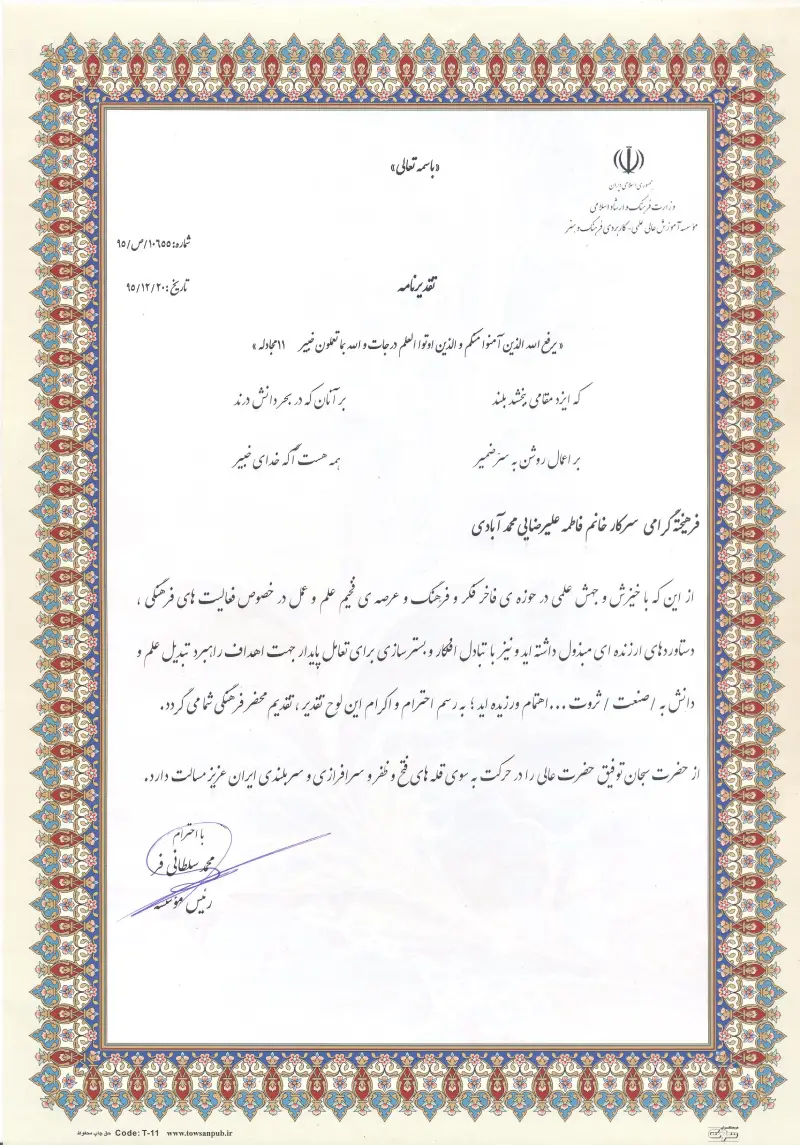 «باسمه تعالی»
جمهوری اسلامی ایران
وزارت فرهنگ و ارشاد اسلامی
مؤسسه آموزش عالی علمی - کاربردی فرهنگ و هنر
شماره: ۱۰۶۵۵/ص/۹۵
تاریخ: ۹۵/۱۲/۲۰
تقدیرنامه
«یرفع الله الذین آمنوا منکم و الذین اوتوا العلم درجات و الله بما تعملون خبیر ۱۱مجادله»
که ایزد مقامی بخشد بلند بر آنان که در بحر دانش درند
بر اعمال روشن به سنر ضمیر همه هست آگه خدای خبیر
فرهیخته گرامی سرکار خانم فاطمه علیرضایی محمد آبادی
از این که با خیزش و جهش علمی در حوزه ی فاخر فکر و فرهنگ و عرصه ی فخیم علم و عمل در خصوص فعالیت های فرهنگی ،
دستاوردهای ارزنده ای مبذول داشته اید و نیز با تبادل افکار و بسترسازی برای تعامل پایدار جهت اهداف راهبرد تبدیل علم و
دانش به / صنعت / ثروت ... اهتمام ورزیده اید ؛ به رسم احترام و اکرام این لوح تقدیر ، تقدیم محضر فرهنگی شما می گردد.
از حضرت سبحان توفیق حضرت عالی را در حرکت به سوی قله های فتح و ظفر و سرافرازی و سربلندی ایران عزیز مسالت دارد.
با احترام
محمد سلطانی فر
رئیس مؤسسه
حق چاپ محفوظ Code: T-11 www.towsanpub.ir